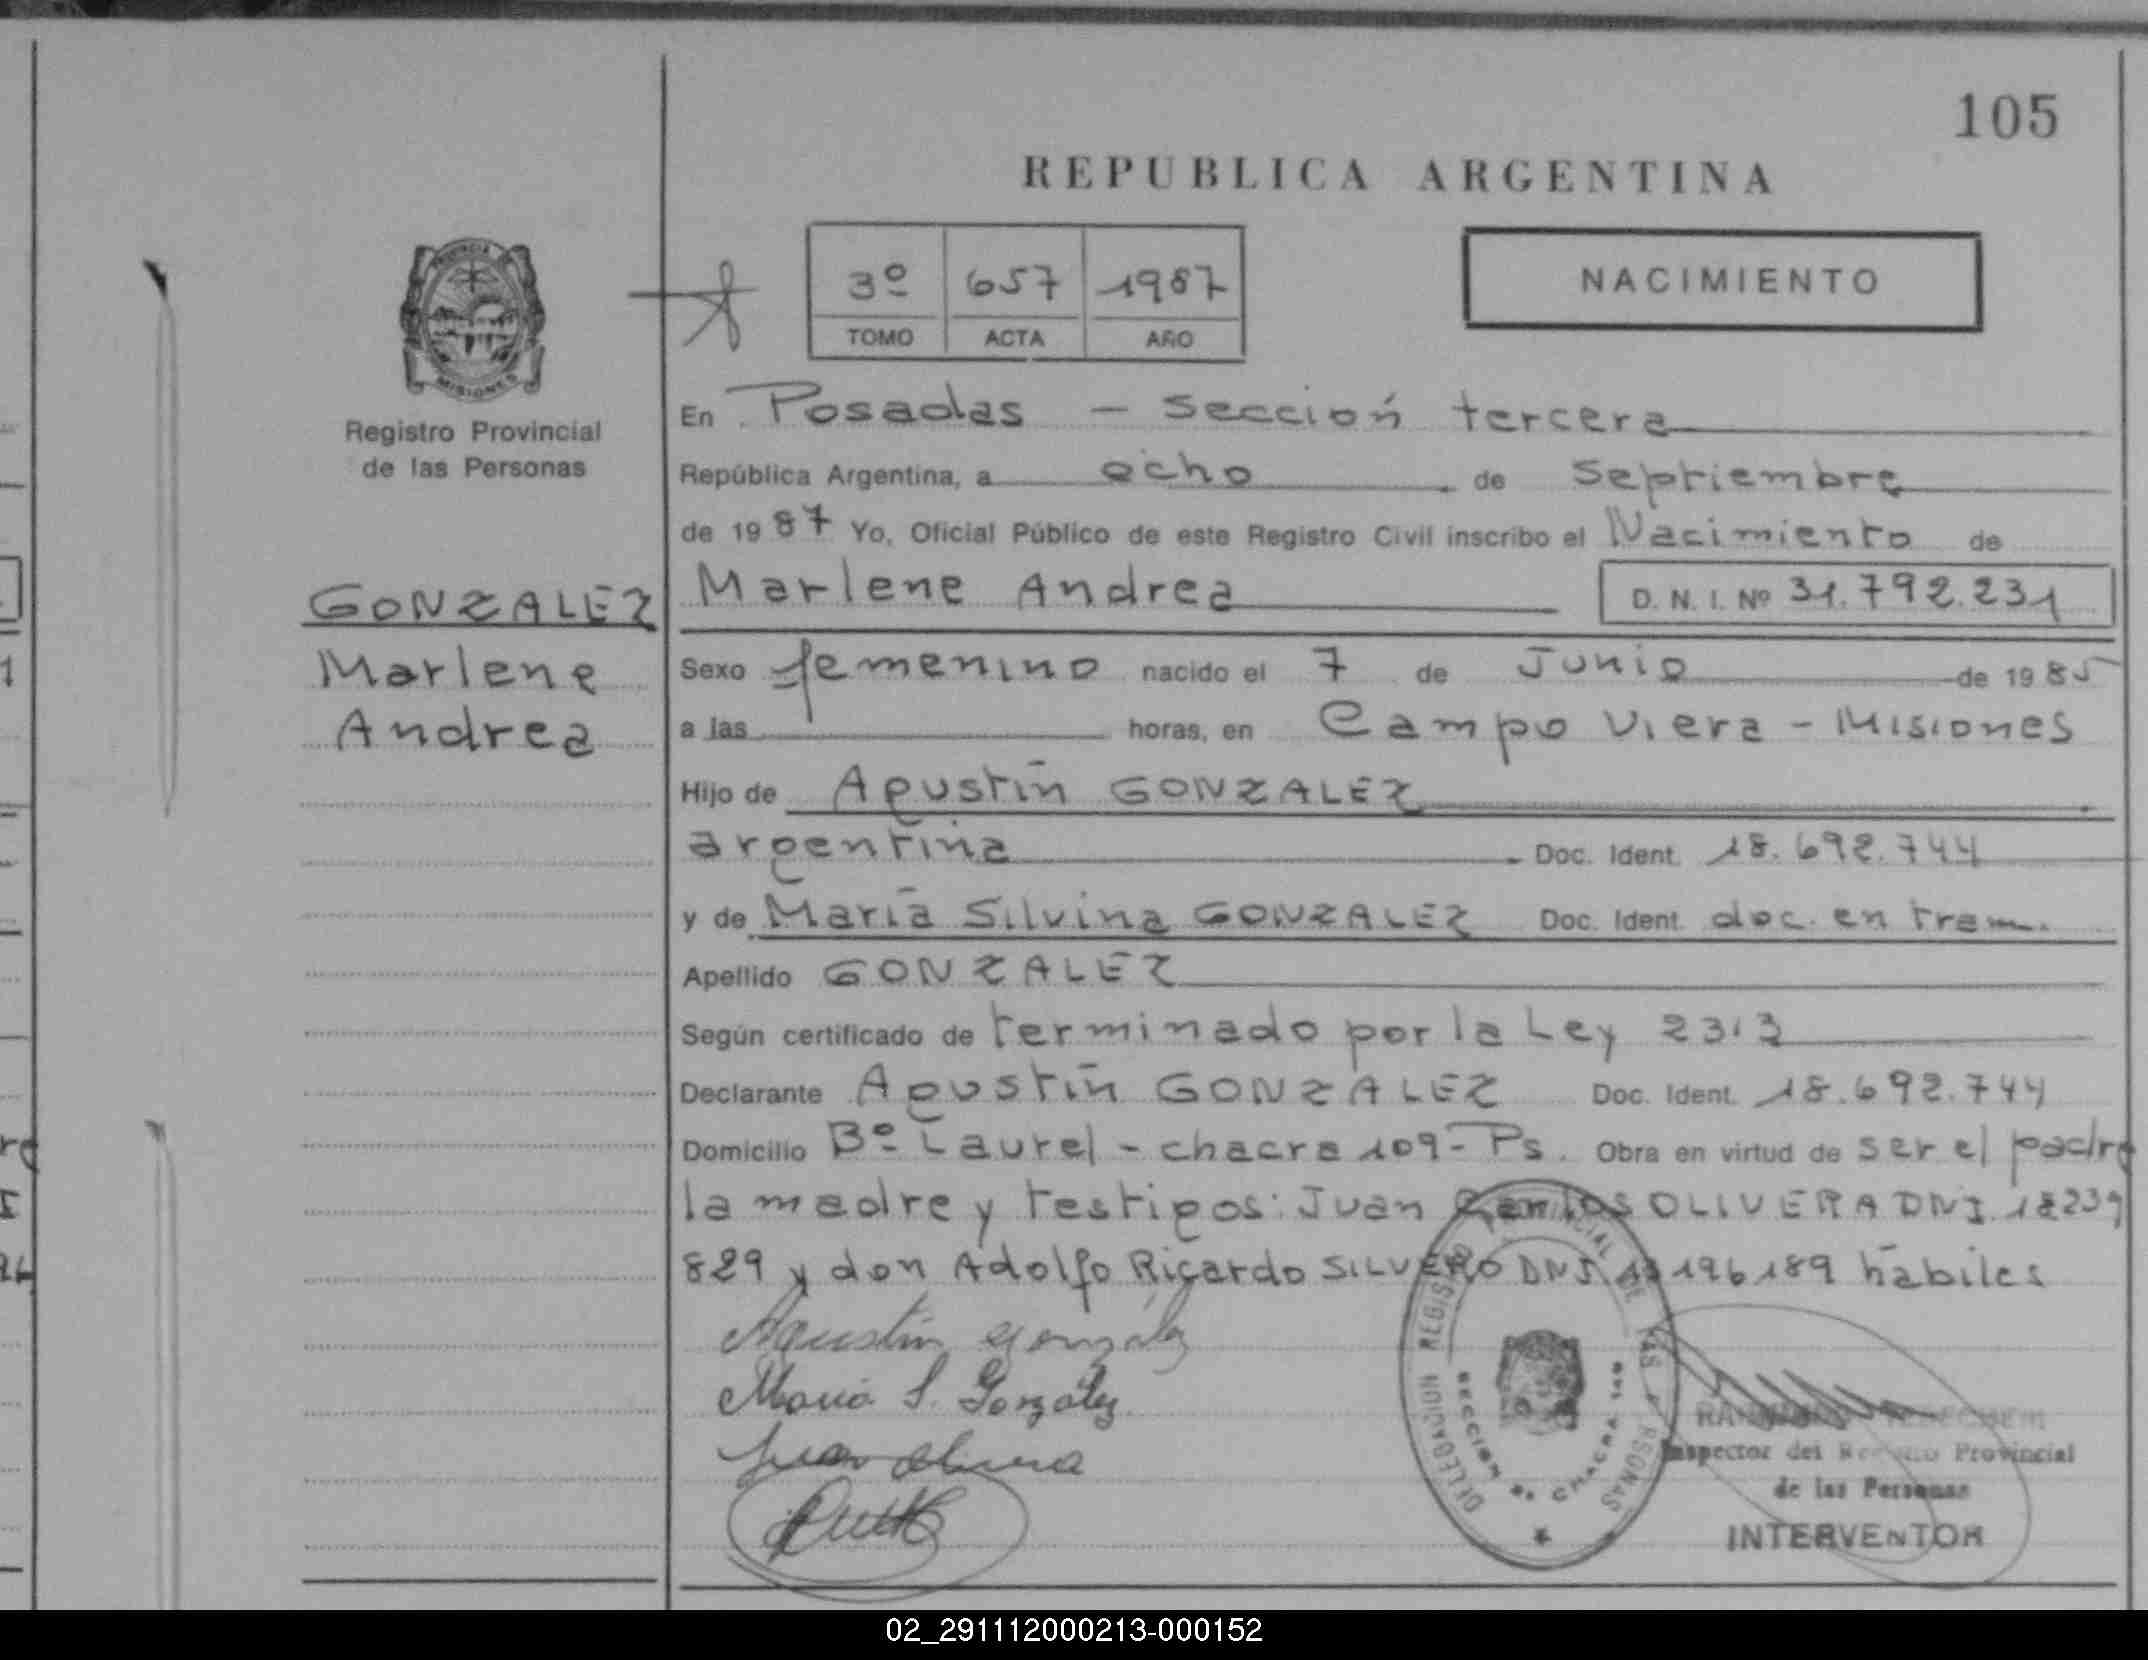 105
REPUBLICA ARGENTINA
PROVINCIA
MISIONES
Registro Provincial
de las Personas
3º 657 1987
TOMO ACTA AÑO
NACIMIENTO
En Posadas - Sección tercera
República Argentina, a ocho de Septiembre
de 1987 Yo, Oficial Público de este Registro Civil inscribo el Nacimiento de
GONZALEZ
Marlene
Andrea
Marlene Andrea D. N. I. Nº 31.792.231
Sexo femenino nacido el 7 de Junio de 1985
a las horas, en Campo Viera - Misiones
Hijo de Agustín GONZALEZ
argentina Doc. Ident. 18.692.744
y de María Silvina GONZALEZ Doc. Ident. doc. en tram.
Apellido GONZALEZ
Según certificado de terminado por la Ley
Declarante Agustín GONZALEZ Doc. Ident. 18.692.744
Domicilio Bº Laurel - chacra 109 - Ps. Obra en virtud de ser el padre
la madre y testigos: Juan Carlos OLIVERA DNI 18239
829 y don Adolfo Ricardo SILVERO DNI 196189 hábiles
Agustín González
María S. González
Juan Olivera
DELEGACION REGISTRO PROVINCIAL DE LAS PERSONAS
SECCION 3a. CHACRA
Inspector del Registro Provincial
de las Personas
INTERVENTOR
02_291112000213-000152